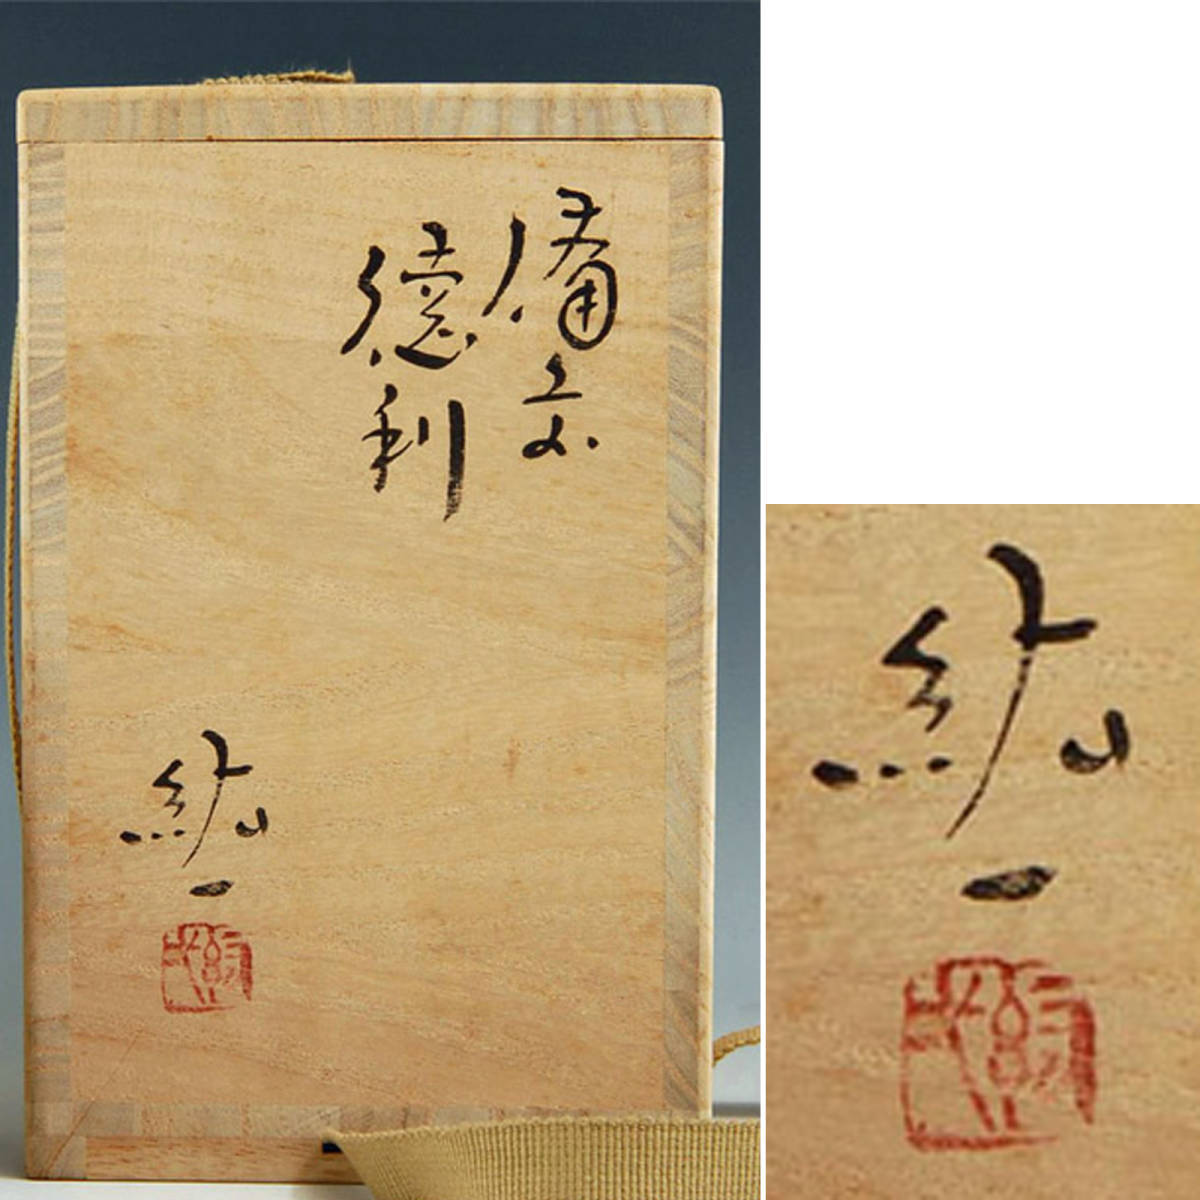 備前
徳利
紘一
紘一